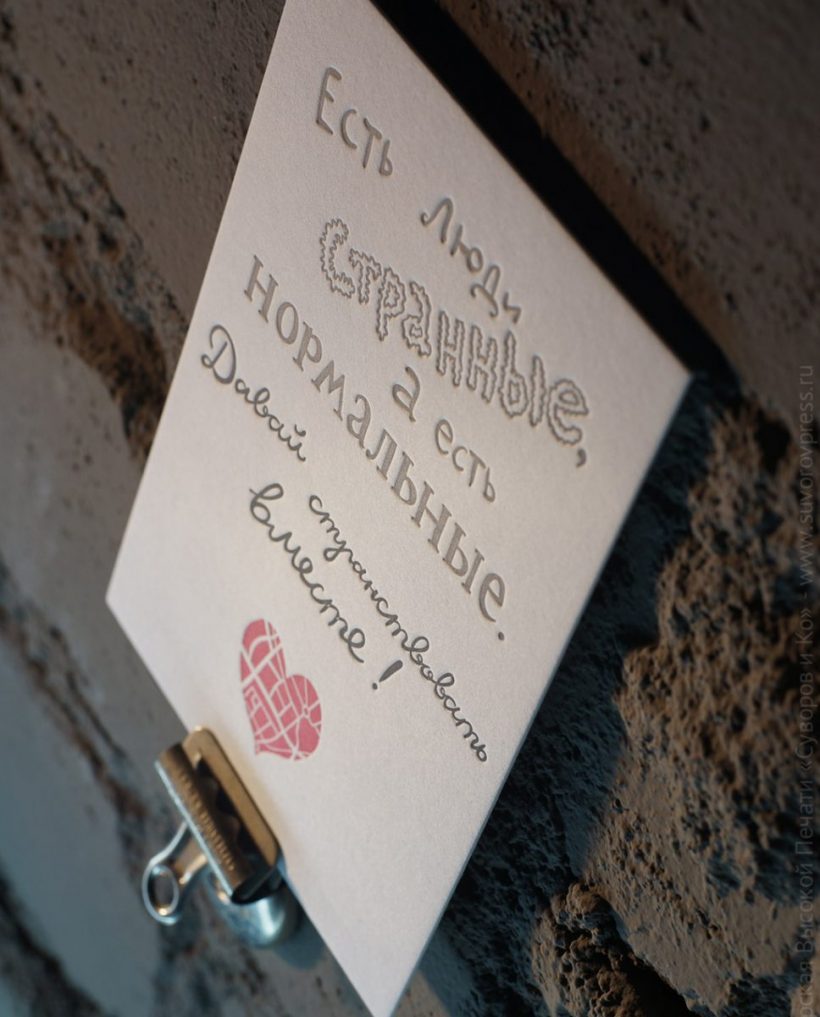 Есть люди
странные,
а есть
нормальные.
Давай странствовать
вместе!
рская Высокой Печати «Суворов и Ко» - www.suvorovpress.ru